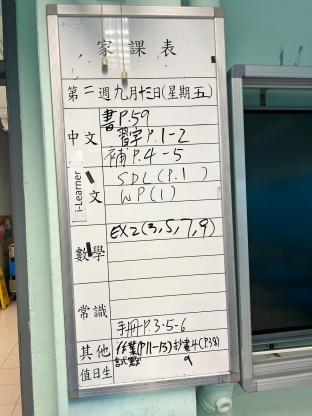 家課表
第二週九月十三日(星期五)
書P.59
中文 習字P.1-2
補P.4-5
i-Learner
SDL(P.1)
文 WP(1)
EX2(3,5,7,9)
數學
常識
手冊P.3-5-6
其他 作業(P11-13)
(P.38)
值日生 9